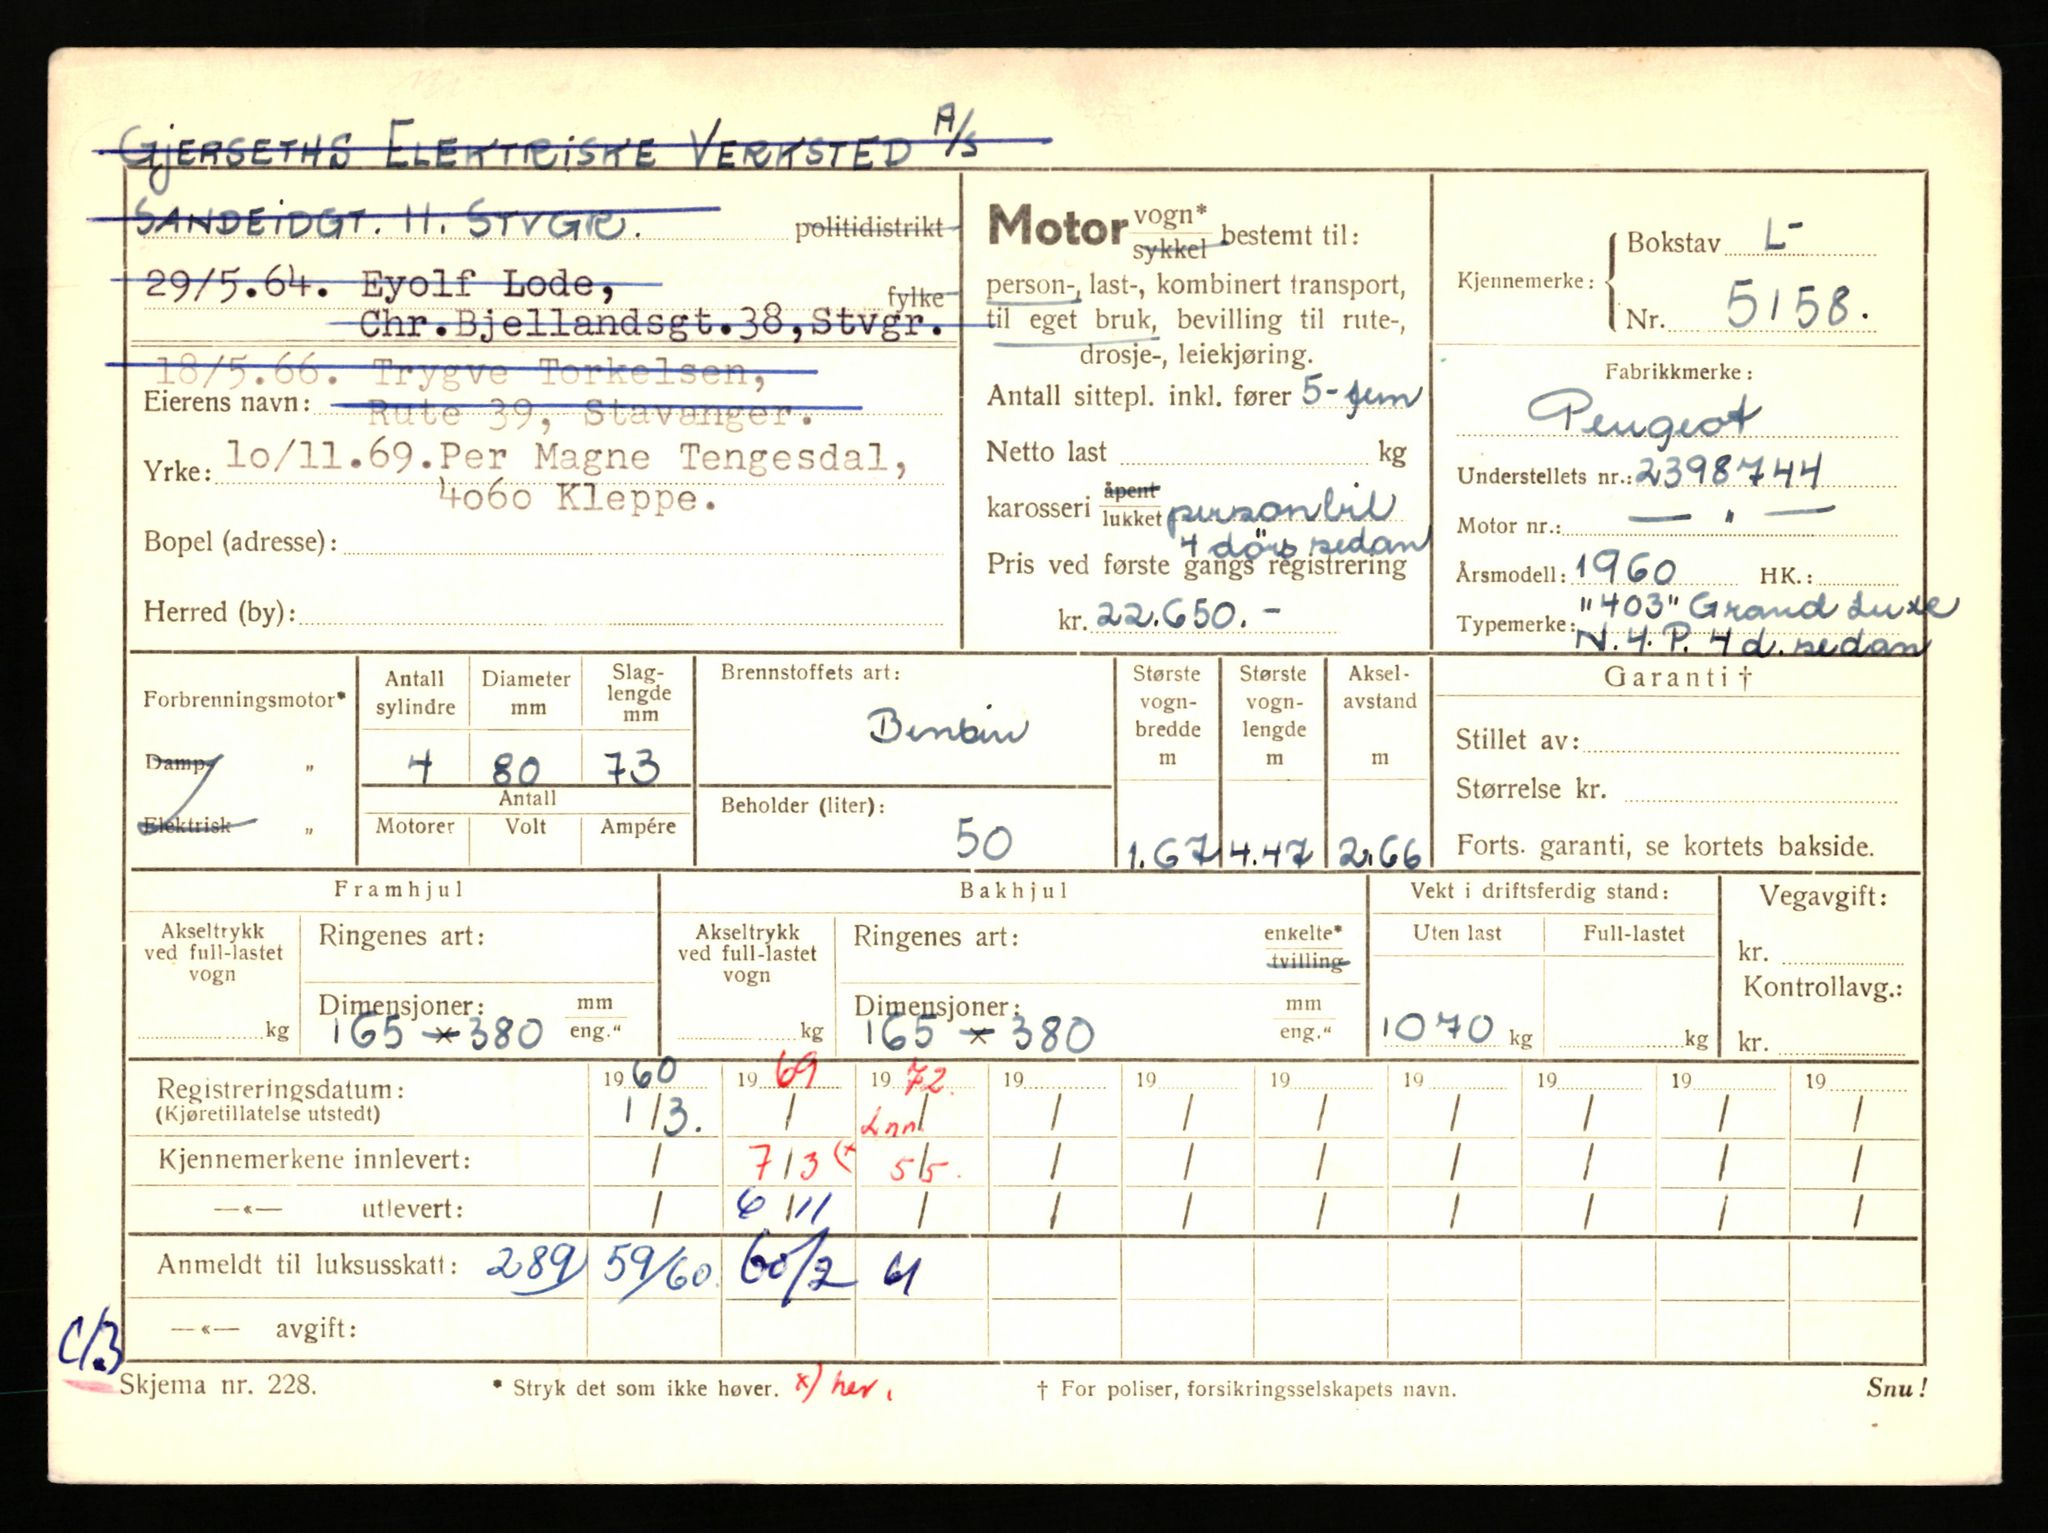 GJERSETHS ELEKTRISKE VERKSTED A/S
SANDEIDGT. 11. STVGR. politidistrikt
29/5.64. Eyolf Lode, fylke
Chr.Bjellandsgt.38,Stvgr.
18/5.66. Trygve Torkelsen,
Eierens navn: Rute 39, Stavanger.
Yrke: 10/11.69.Per Magne Tengesdal,
4060 Kleppe.
Bopel (adresse):
Herred (by):
Motor vogn* sykkel bestemt til:
person-, last-, kombinert transport,
til eget bruk, bevilling til rute-,
drosje-, leiekjøring.
Antall sittepl. inkl. fører 5-fem
Netto last kg
karosseri åpent lukket personbil
4 dörs sedan
Pris ved første gangs registrering
kr. 22.650.-
Kjennemerke: Bokstav L-
Nr. 5158.
Fabrikkmerke:
Peugeot
Understellets nr.: 2398744
Motor nr.: — " —
Årsmodell: 1960 HK.:
Typemerke: "403" Grand Luxe
N.4.P. 4d. sedan
Forbrenningsmotor*
Damp- "
Elektrisk "
Antall sylindre Diameter mm Slag-lengde mm
4 80 73
Antall
Motorer Volt Ampére
Brennstoffets art:
Bensin
Beholder (liter):
50
Største vogn-bredde m Største vogn-lengde m Aksel-avstand m
1.67 4.47 2.66
Garanti †
Stillet av:
Størrelse kr.
Forts. garanti, se kortets bakside.
Framhjul
Akseltrykk ved full-lastet vogn
kg
Ringenes art:
Dimensjoner: mm eng."
165 x 380
Bakhjul
Akseltrykk ved full-lastet vogn
kg
Ringenes art: enkelte* tvilling
Dimensjoner: mm eng."
165 x 380
Vekt i driftsferdig stand:
Uten last Full-lastet
1070 kg kg
Vegavgift:
kr.
Kontrollavg.:
kr.
Registreringsdatum: 1960 1969 1972. 19 19 19 19 19 19 19
(Kjøretillatelse utstedt) 1/3. / / / / / / / / /
Kjennemerkene innlevert: / 7/3 (x 5/5. / / / / / / /
—«— utlevert: / 6/11 / / / / / / / /
Anmeldt til luksusskatt: 289 59/60. 60/2 61
—«— avgift:
C/3
Skjema nr. 228. * Stryk det som ikke høver. x) her. † For poliser, forsikringsselskapets navn. Snu!